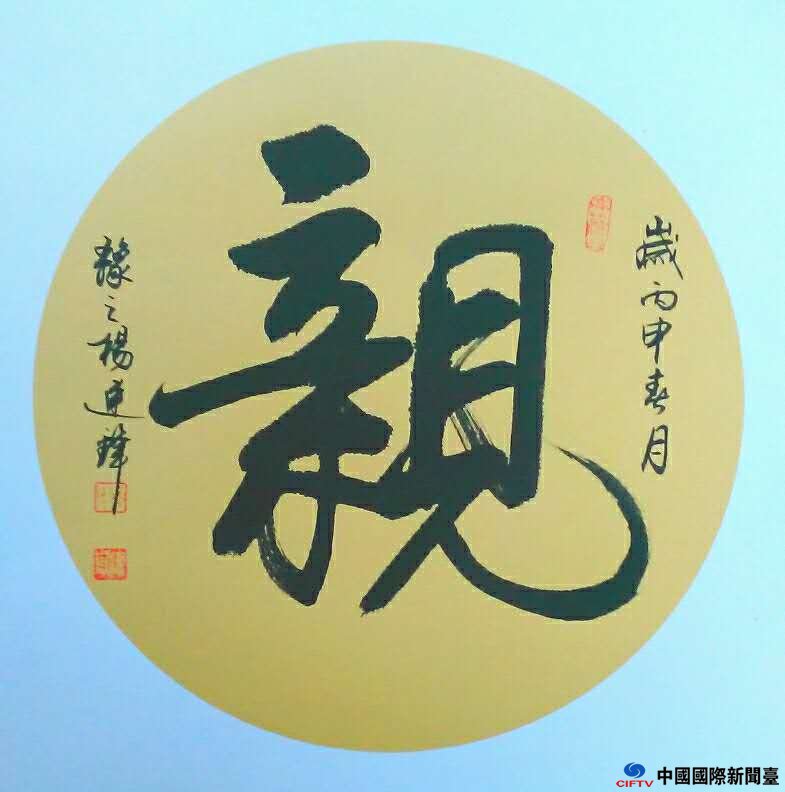 歲丙申春月
親
豫之楊建鋒
CIFTV 中國國際新聞臺